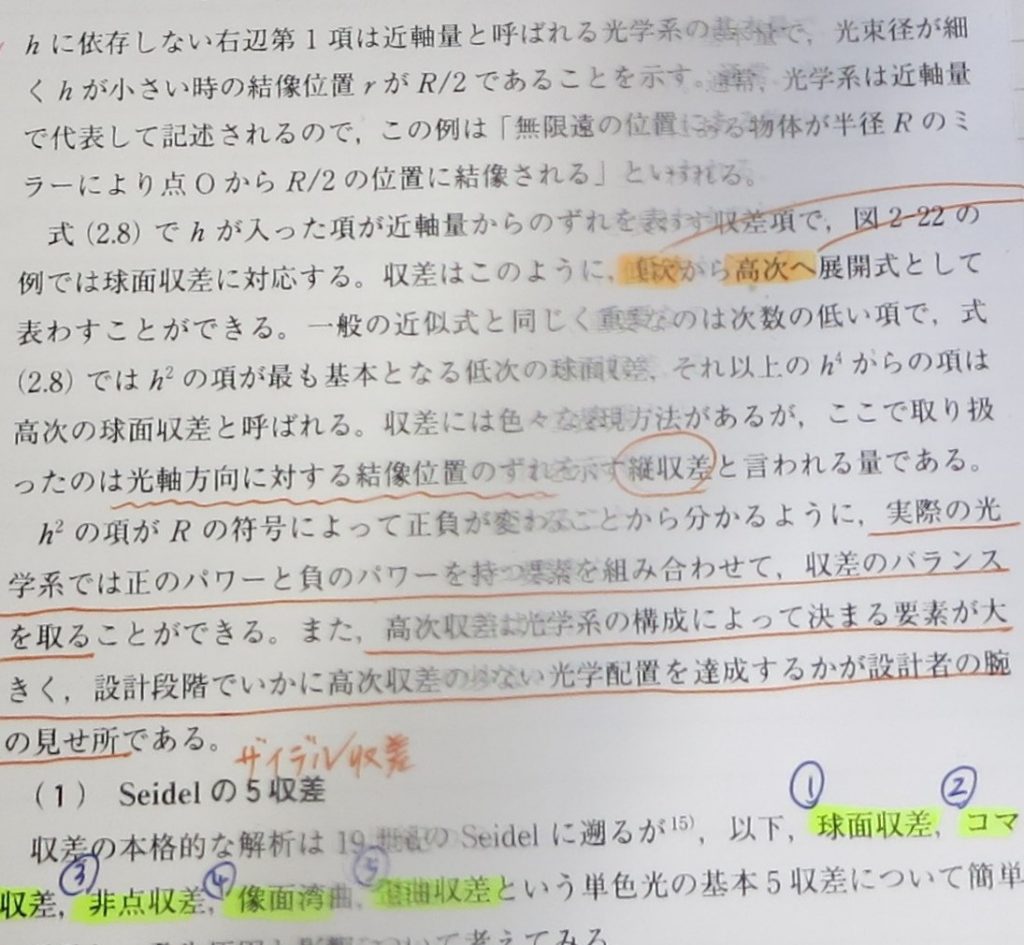 hに依存しない右辺第1項は近軸量と呼ばれる光学系の基本量で，光束径が細
くhが小さい時の結像位置rがR/2であることを示す。通常，光学系は近軸量
で代表して記述されるので，この例は「無限遠の位置にある物体が半径Rのミ
ラーにより点OからR/2の位置に結像される」といわれる。
式(2.8)でhが入った項が近軸量からのずれを表わす収差項で，図2-22の
例では球面収差に対応する。収差はこのように，低次から高次へ展開式として
表わすことができる。一般の近似式と同じく重要なのは次数の低い項で，式
(2.8)ではh²の項が最も基本となる低次の球面収差，それ以上のh⁴からの項は
高次の球面収差と呼ばれる。収差には色々な表現方法があるが，ここで取り扱
ったのは光軸方向に対する結像位置のずれを示す縦収差と言われる量である。
h²の項がRの符号によって正負が変わることから分かるように，実際の光
学系では正のパワーと負のパワーを持つ要素を組み合わせて，収差のバランス
を取ることができる。また，高次収差は光学系の構成によって決まる要素が大
きく，設計段階でいかに高次収差の少ない光学配置を達成するかが設計者の腕
の見せ所である。
ザイデル収差
(1) Seidelの5収差
① ②
収差の本格的な解析は19世紀のSeidelに遡るが¹⁵⁾，以下，球面収差，コマ
③ ④ ⑤
収差，非点収差，像面湾曲，歪曲収差という単色光の基本5収差について簡単
について考えてみる